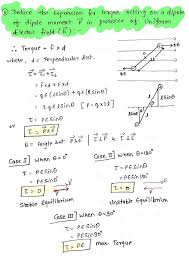 ③ Deduce the expression for torque acting on a dipole
of dipole moment P⃗ in presence of uniform
electric field (E⃗) :-
∴ Torque = F × d
where, d = Perpendicular dist.
τ⃗ = τ⃗₁ + τ⃗₂
= F×d + F×d
= qE (l sinθ) + qE (l sinθ)
= 2qE l sinθ [P = q×2l]
τ = PE sinθ
or τ⃗ = P⃗×E⃗
θ = Angle b/w P⃗ & E⃗
Case I When θ = 0°
τ = PE sinθ
τ = PE sin0°
τ = 0
Stable Equilibrium
Case II When θ = 180°
τ = PE sinθ
= PE sin180°
τ = 0
Unstable Equilibrium
Case III When θ = 90°
τ = PE sinθ
= PE sin90°
τ = PE max. Torque